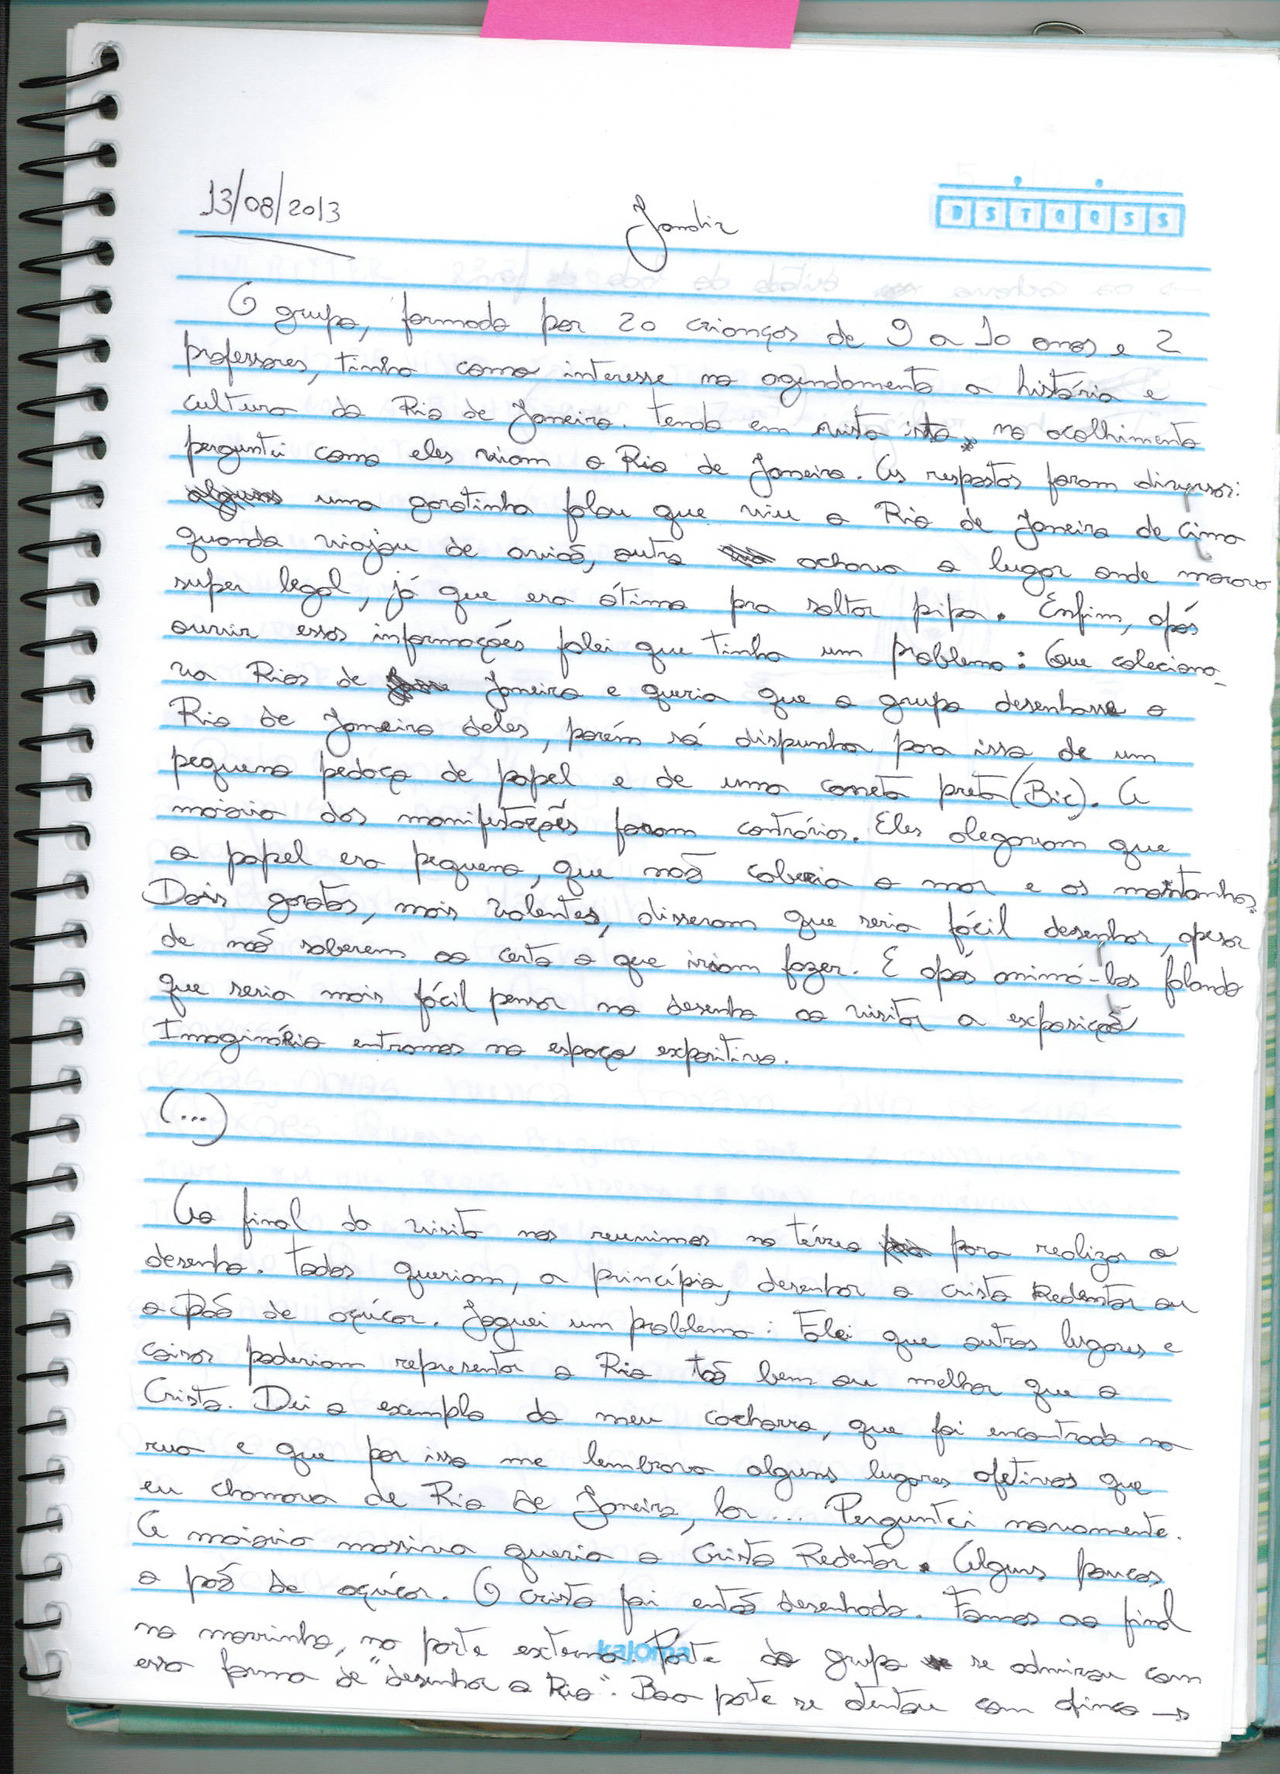 13/08/2013 Jandir
D S T Q Q S S
O grupo, formado por 20 crianças de 9 a 10 anos e 2
professores, tinha como interesse no agendamento a história e
cultura do Rio de Janeiro. Tendo em vista isto, no acolhimento
perguntei como eles viam o Rio de Janeiro. As respostas foram diversas:
uma garotinha falou que viu o Rio de Janeiro de cima
quando viajou de avião, outro achava o lugar onde morava
super legal, já que era ótimo pra soltar pipa. Enfim, após
ouvir essas informações falei que tinha um problema: Que coleciona-
va Rios de Janeiro e queria que o grupo desenhasse o
Rio de Janeiro deles, porém só dispunha para isso de um
pequeno pedaço de papel e de uma caneta preta (Bic). A
maioria das manifestações foram contrárias. Eles alegaram que
o papel era pequeno, que não caberia o mar e as montanhas.
Dois garotos, mais valentes, disseram que seria fácil desenhar, apesar
de não saberem ao certo o que iriam fazer. E após animá-los falando
que seria mais fácil pensar no desenho ao visitar a exposição
ImaginaRio entramos no espaço expositivo.
(...)
Ao final da visita nos reunimos no térreo para realizar o
desenho. Todos queriam, a princípio, desenhar o Cristo Redentor ou
o Pão de açúcar. Joguei um problema: Falei que outros lugares e
coisas poderiam representar o Rio tão bem ou melhor que o
Cristo. Dei o exemplo do meu cachorro, que foi encontrado na
rua e que por isso me lembrava alguns lugares afetivos que
eu chamava de Rio de Janeiro, lar... Perguntei novamente.
A maioria massiva queria o Cristo Redentor. Alguns poucos
o pão de açúcar. O Cristo foi então desenhado. Fomos ao final
no morrinho, na parte externa. Parte do grupo se admirou com
kajoma
essa forma de "desenhar o Rio". Boa parte se deitou com afinco →